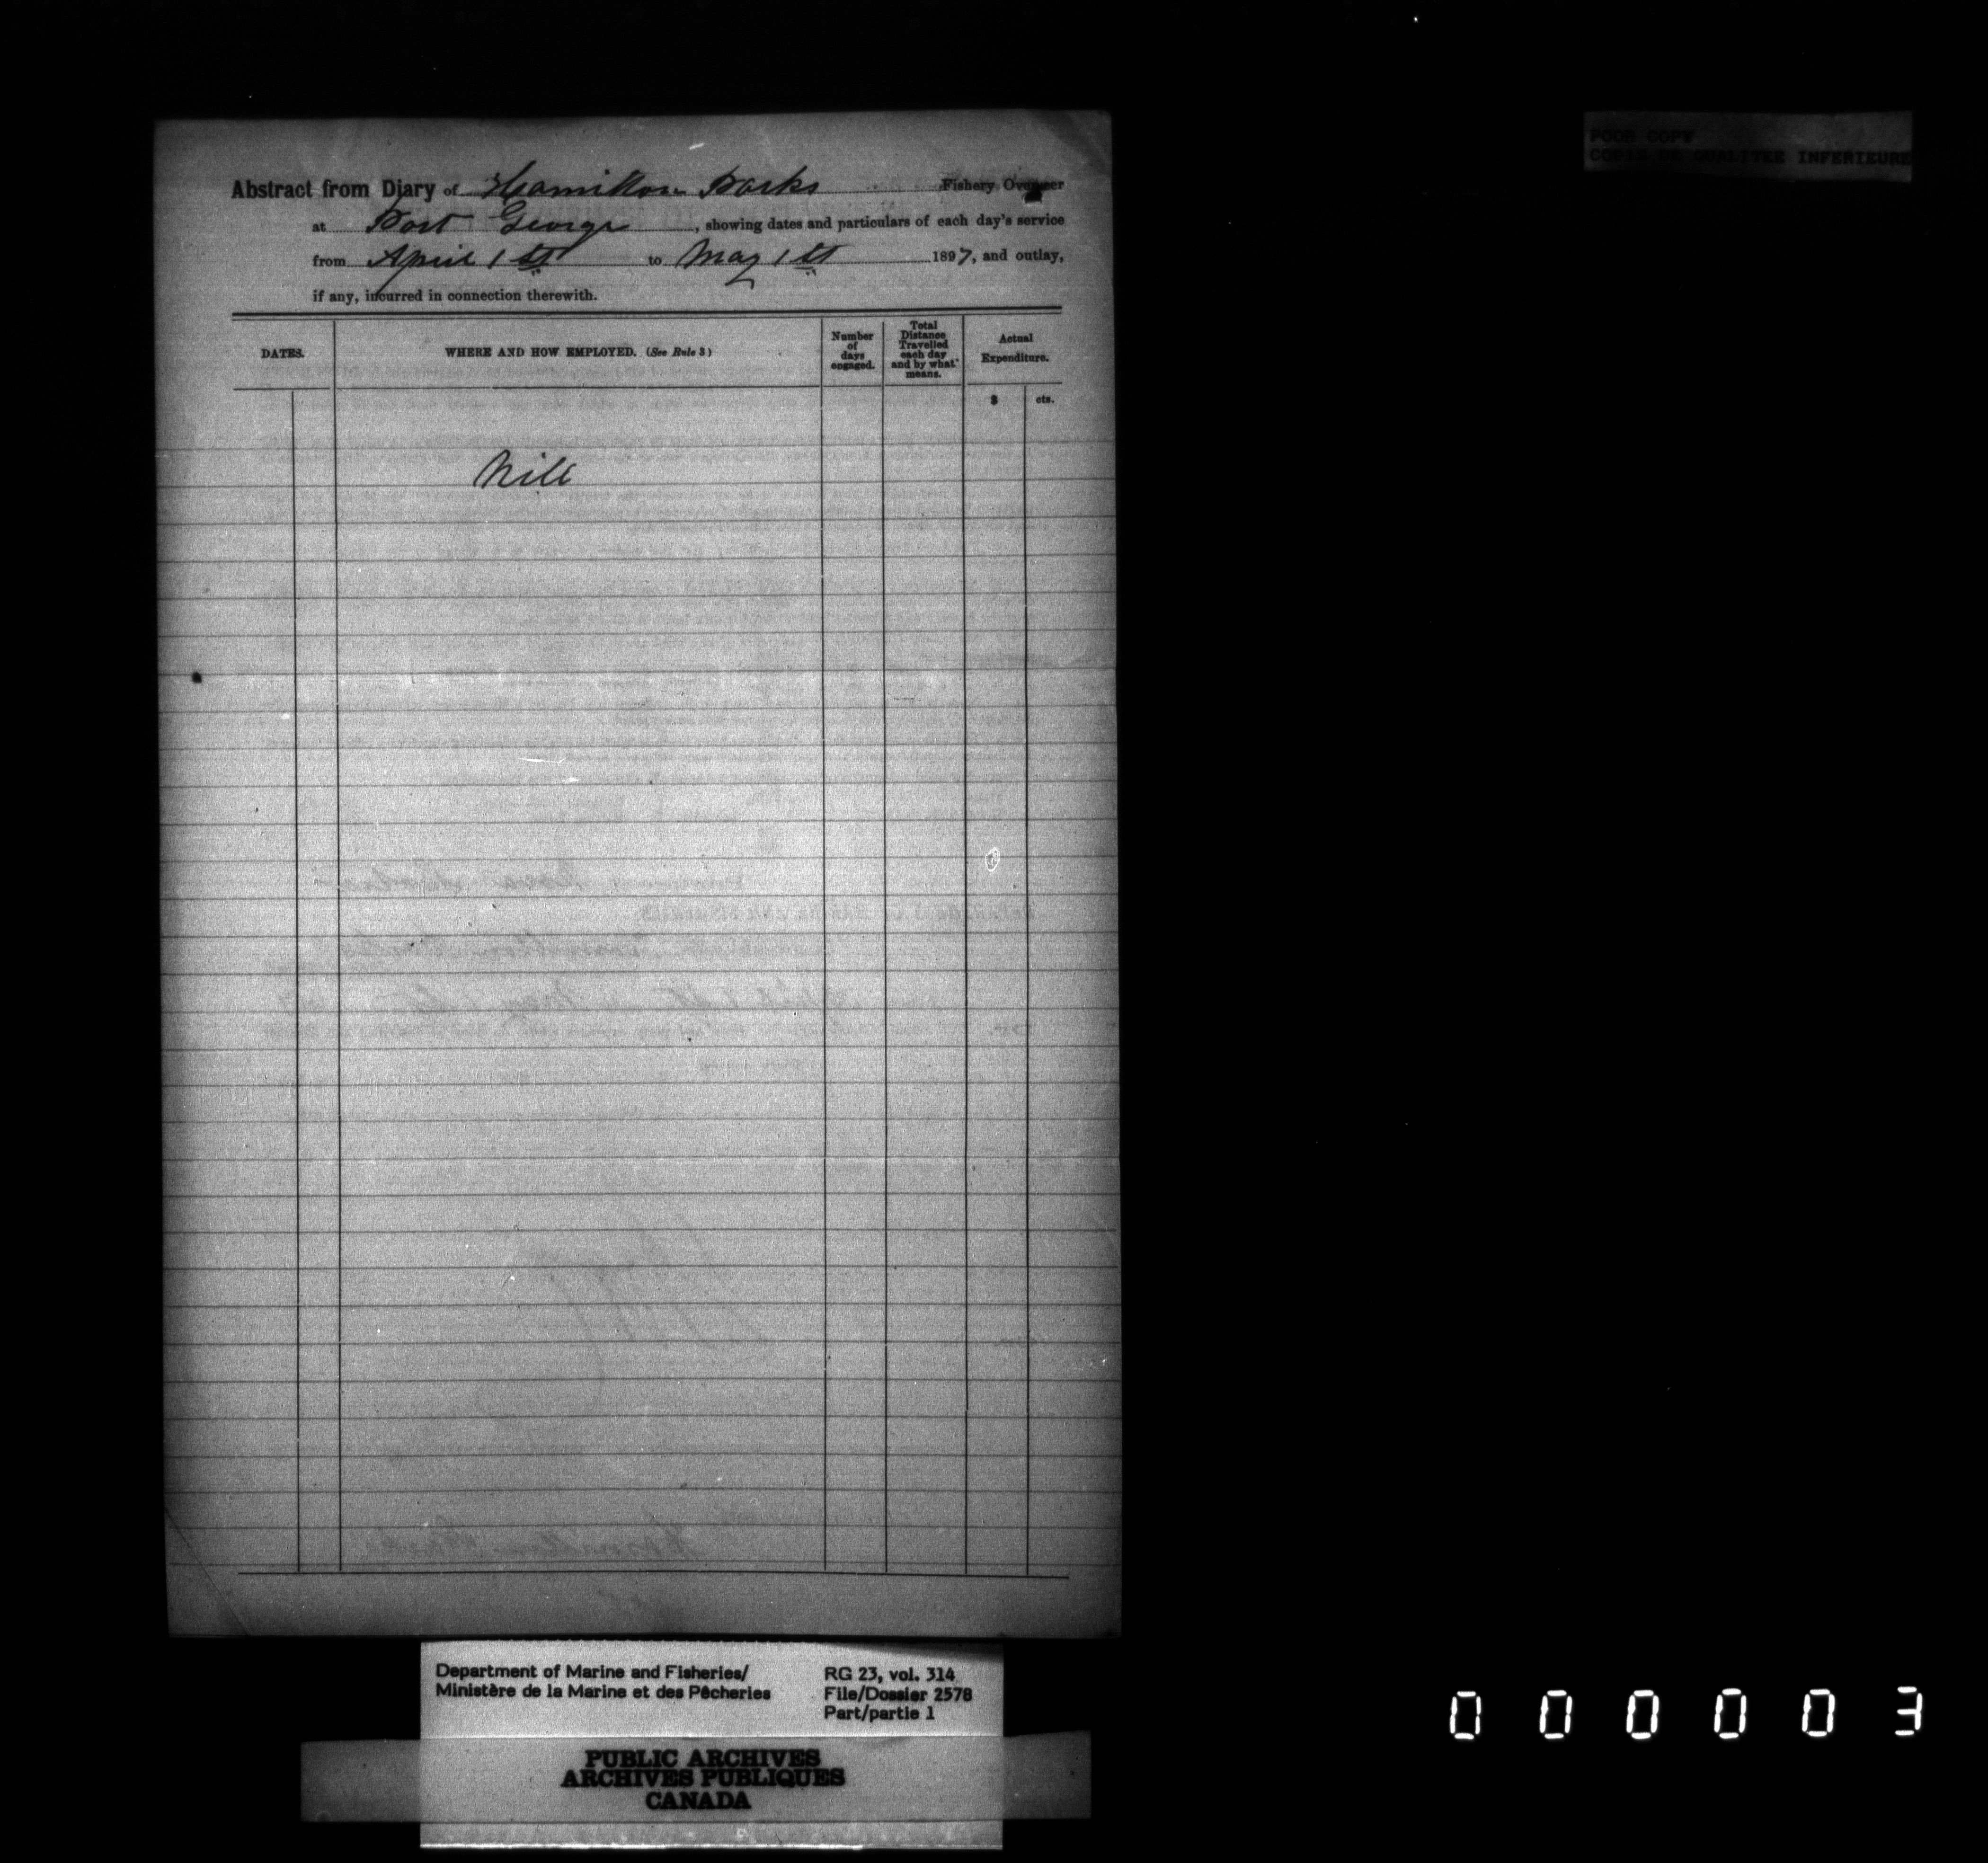 POOR COPY
COPIE DE QUALITEE INFERIEURE
Abstract from Diary of Hamilton Parks Fishery Overseer
at Port George, showing dates and particulars of each day's service
from April 1st to May 1st 1897, and outlay,
if any, incurred in connection therewith.
DATES. WHERE AND HOW EMPLOYED. (See Rule 3) Number of days engaged. Total Distance Travelled each day and by what means. Actual Expenditure.
$ cts.
Nill
Department of Marine and Fisheries/ RG 23, vol. 314
Ministère de la Marine et des Pêcheries File/Dossier 2578
Part/partie 1
PUBLIC ARCHIVES
ARCHIVES PUBLIQUES
CANADA
000003